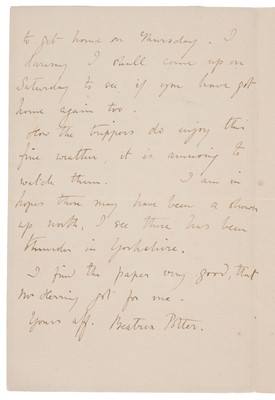 to get home on Thursday. I
daresay I shall come up on
Saturday to see if you have got
home again too.
How the trippers do enjoy this
fine weather, it is amusing to
watch them. I am in
hopes there may have been a shower
up north, I see there has been
thunder in Yorkshire.
I find the paper very good, that
Mr Herring got for me.
Yours aff. Beatrix Potter.